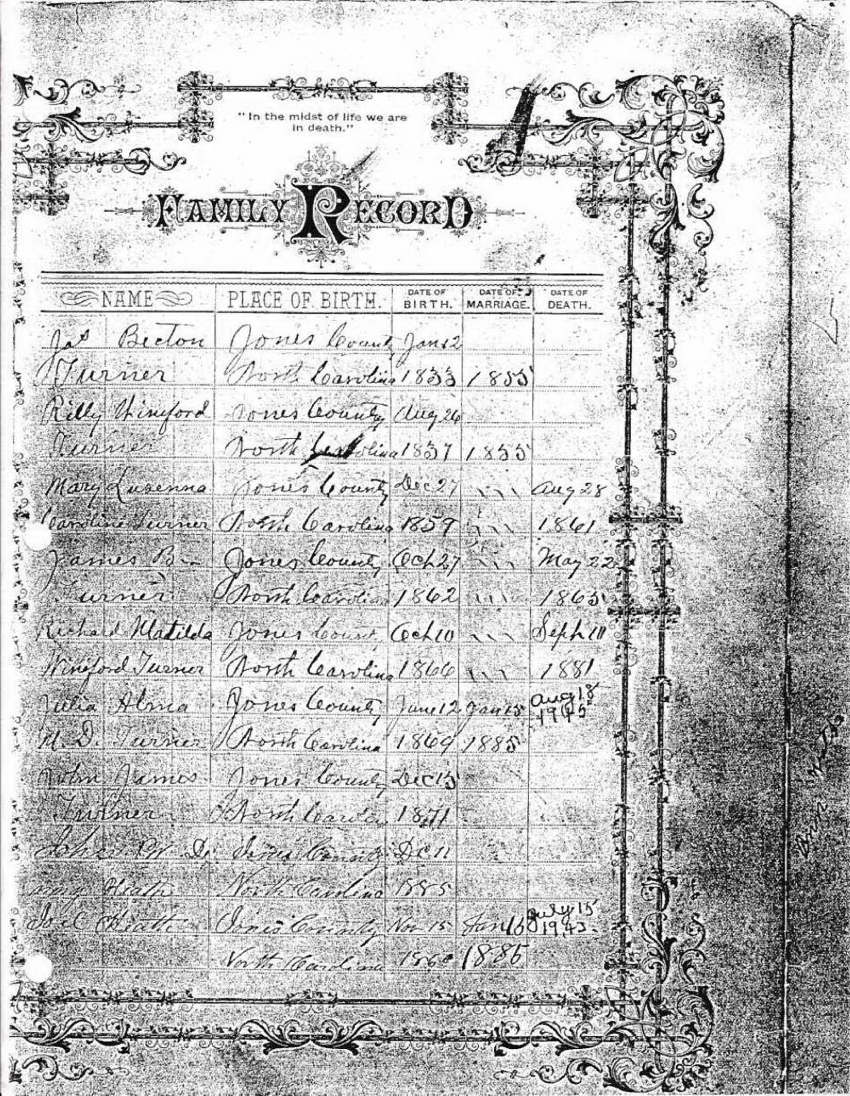 "In the midst of life we are
in death."
FAMILY RECORD
NAME PLACE OF BIRTH. DATE OF BIRTH. DATE OF MARRIAGE. DATE OF DEATH.
Jas Becton Jones County Jan 12
Turner North Carolina 1833 1855
Rilly Winiford Jones County Aug 26
Turner North Carolina 1837 1855
Mary Lusenna Jones County Dec 27 Aug 28
Caroline Turner North Carolina 1859 1861
James B. Jones County Oct 27 May 22
Turner North Carolina 1862 1865
Richard Matilda Jones County Oct 10 Sept 11
Winiford Turner North Carolina 1866 1881
Julia Alma Jones County June 12 Jan 15 Aug 18 1945
D. Turner North Carolina 1869 1885
John James Jones County Dec 15
Turner North 18
Jones County 11
Heath North Carolina 1885
Heath Jones County Nov 15 Jan 15 July 15 1943
North Carolina 1885